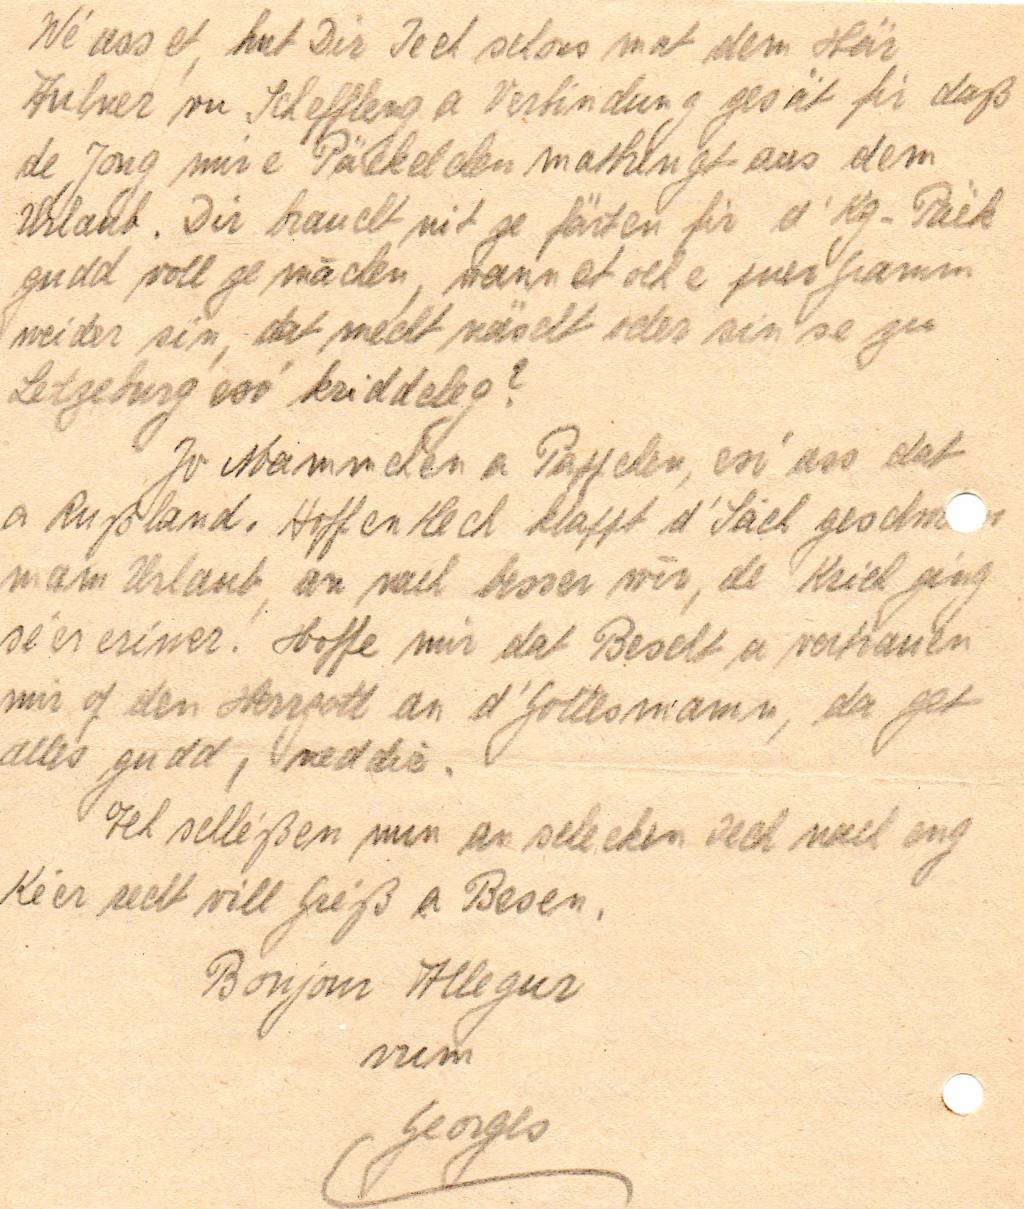 Wé ass et, hut Dir Iech schons mat dem Här
Hulver vu Schëffleng a Verbindung gesät fir daß
de Jong mir e Päckelchen mathingt aus dem
Urlaub. Dir braucht nit ze färten fir d' Kg-Päck
gudd voll ze mächen, wann et och e puer Gramm
weider sin, dat mecht näscht oder sin se zu
Letzeburg esó kriddeleg?
Jo Mammchen a Pappchen, esó ass dat
a Rußland. Hoffentlech klappt d'Säch
mam Urlaub, an nach besser wir, de Krich ging
séer eriwer! Hoffe mir dat Bescht a vertrauen
mir of den Herrgott an d'Gottesmamm, da get
alles gudd, neddié.
Ech schléßen nun an schecken Iech nach eng
Kéer recht vill Gréß a Besen.
Bonjour Allegur
vum
Georges